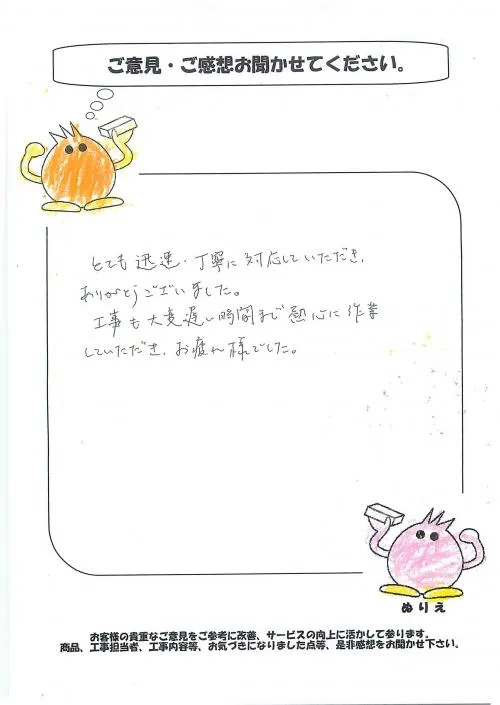 ご意見・ご感想お聞かせてください。
とても迅速・丁寧に対応していただき、
ありがとうございました。
工事も大変遅い時間まで熱心に作業
していただき、お疲れ様でした。
ぬりえ
お客様の貴重なご意見をご参考に改善、サービスの向上に活かして参ります。
商品、工事担当者、工事内容等、お気づきになりました点等、是非感想をお聞かせ下さい。